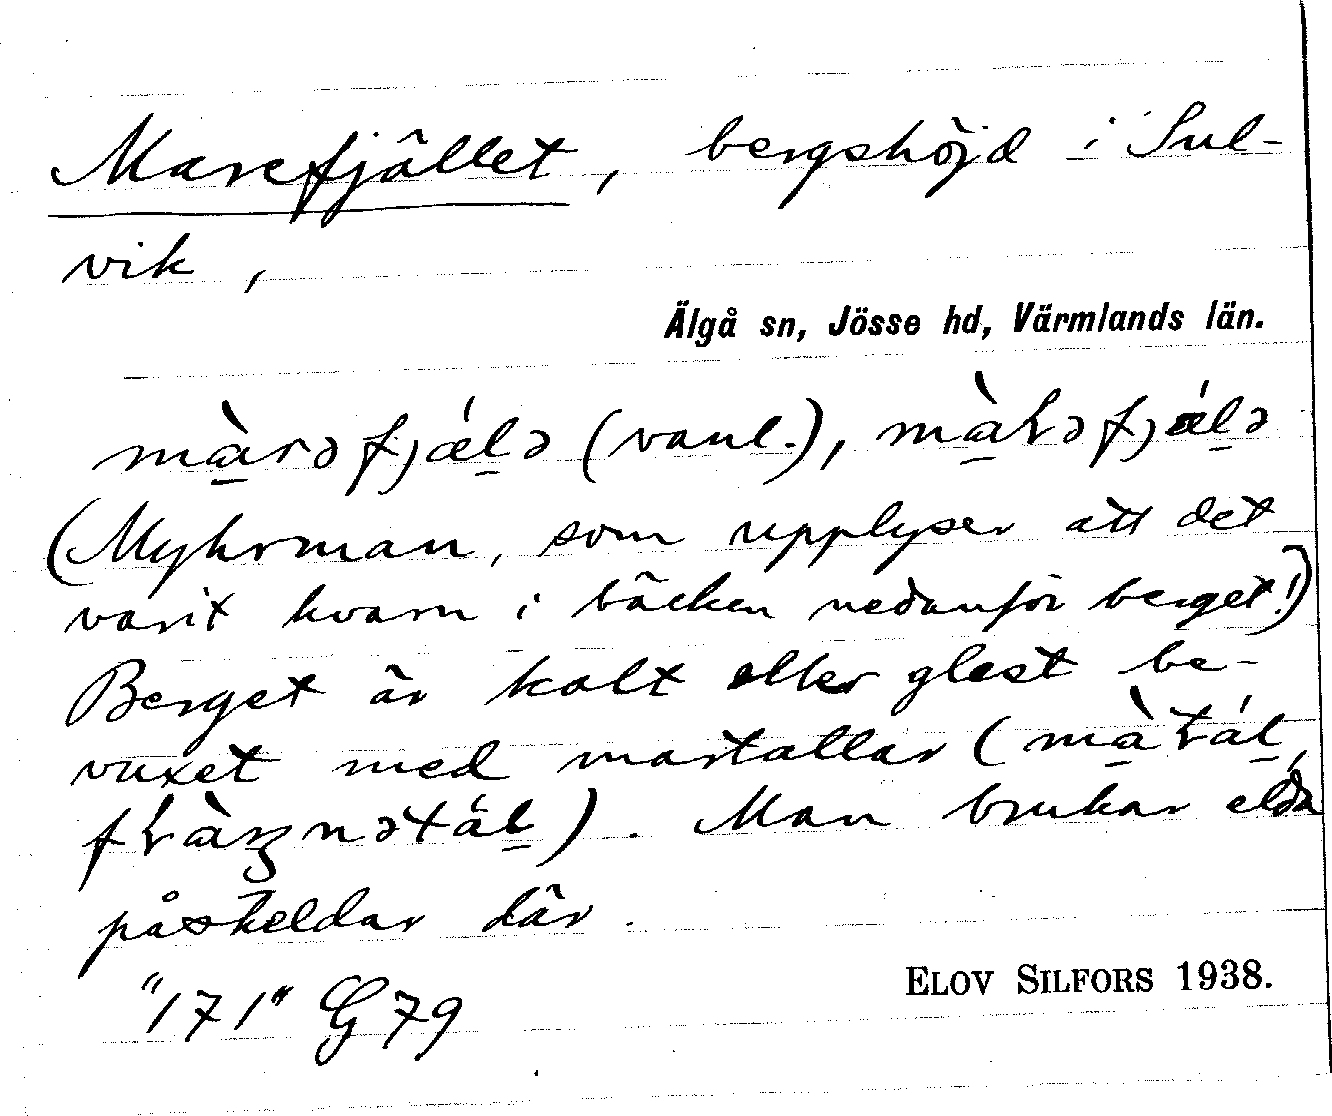 Marefjället, bergshöjd i Sul-
vik,
Älgå sn, Jösse hd, Värmlands län.
màrəfjǽlə (vanl.), 
(Myhrman, som upplyser att det
varit kvarn i bäcken nedanför berget!)
Berget är kalt eller glest be-
vuxet med martallar (
). Man brukar elda
påskeldar där.
"171" G 79
ELOV SILFORS 1938.